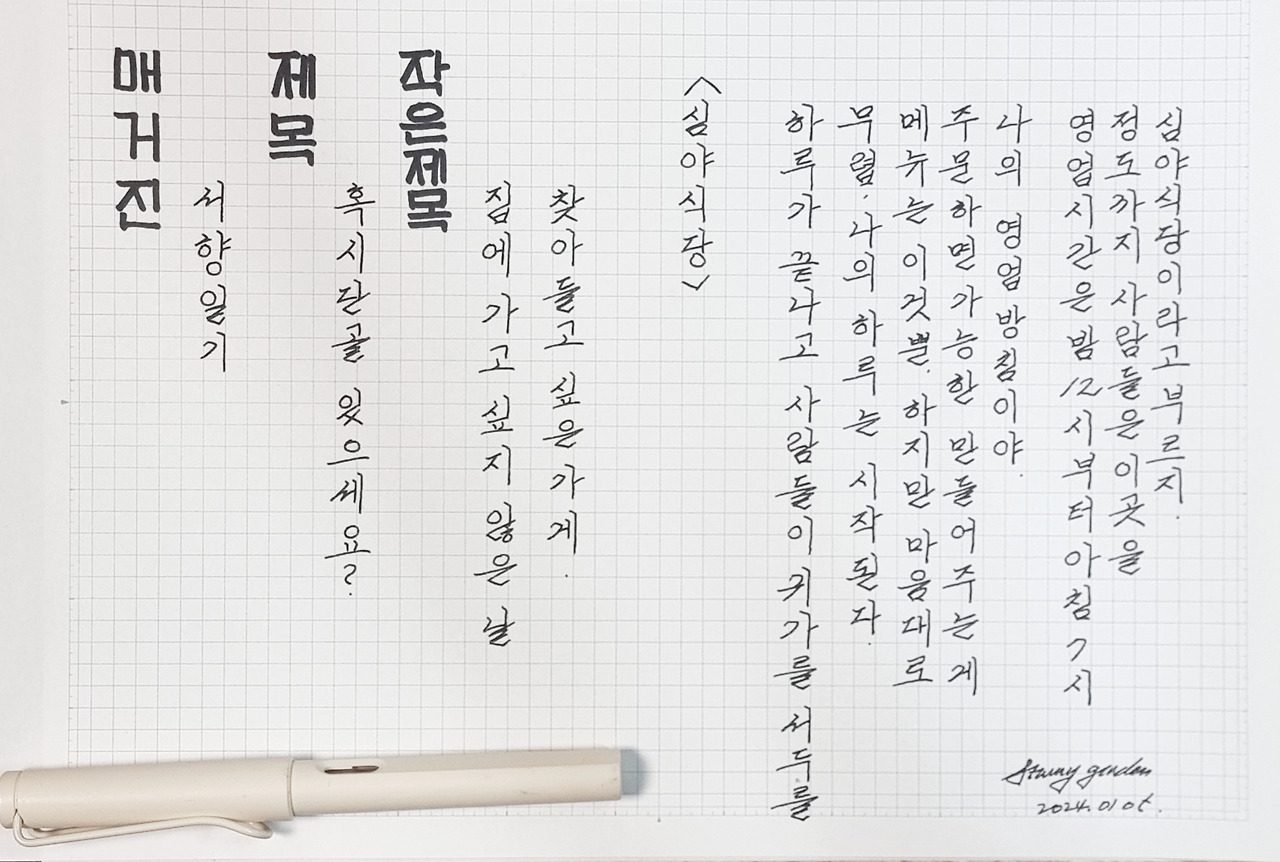 매거진
서향일기
제목
혹시 단골 있으세요?
작은제목
집에 가고 싶지 않은 날
찾아들고 싶은 가게.
<심야식당>
하루가 끝나고 사람들이 귀가를 서두를
무렵. 나의 하루는 시작된다.
메뉴는 이것뿐. 하지만 마음대로
주문하면 가능한 만들어주는 게
나의 영업방침이야.
영업시간은 밤 12시부터 아침 7시
정도까지 사람들은 이곳을
심야식당이라고 부르지.
2024.01.05.